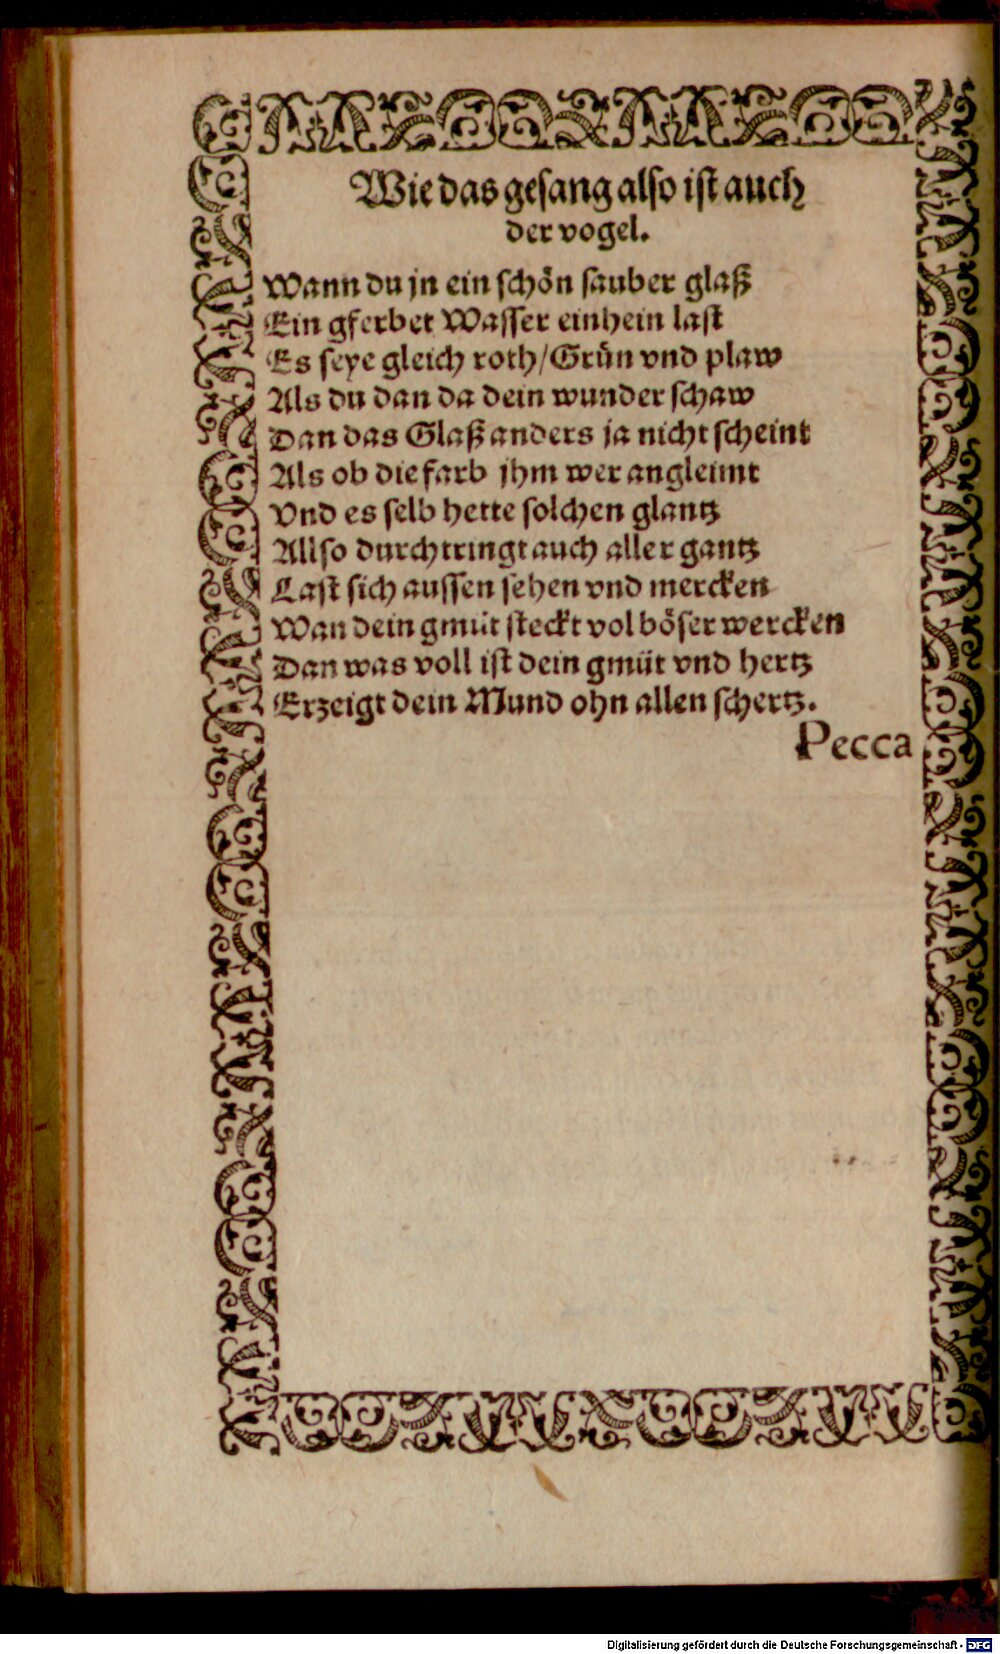 Wie das gesang also ist auch
der vogel.
Wann du jn ein schön sauber glaß
Ein gferbet Wasser einhein last
Es seye gleich roth/Grün vnd plaw
Als du dan da dein wunder schaw
Dan das Glaß anders ja nicht scheint
Als ob die farb jhm wer angleimt
Vnd es selb hette solchen glantz
Allso durchtringt auch aller gantz
Last sich aussen sehen vnd mercken
Wan dein gmüt steckt vol böser wercken
Dan was voll ist dein gmüt vnd hertz
Erzeigt dein Mund ohn allen schertz.
Pecca
Digitalisierung gefördert durch die Deutsche Forschungsgemeinschaft - DFG